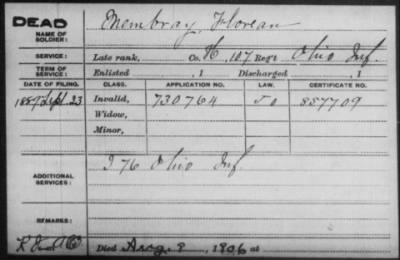 DEAD Membray, Florean
NAME OF SOLDIER:
SERVICE: Late rank, Co. H, 107 Reg't Ohio Inf.
TERM OF SERVICE: Enlisted , 1 Discharged , 1
DATE OF FILING. CLASS. APPLICATION NO. LAW. CERTIFICATE NO.
1889 Sept. 23 Invalid, 730764 887709
Widow,
Minor,
ADDITIONAL SERVICES: I 76 Ohio Inf.
REMARKS:
Died Aug. 8, 1906 at